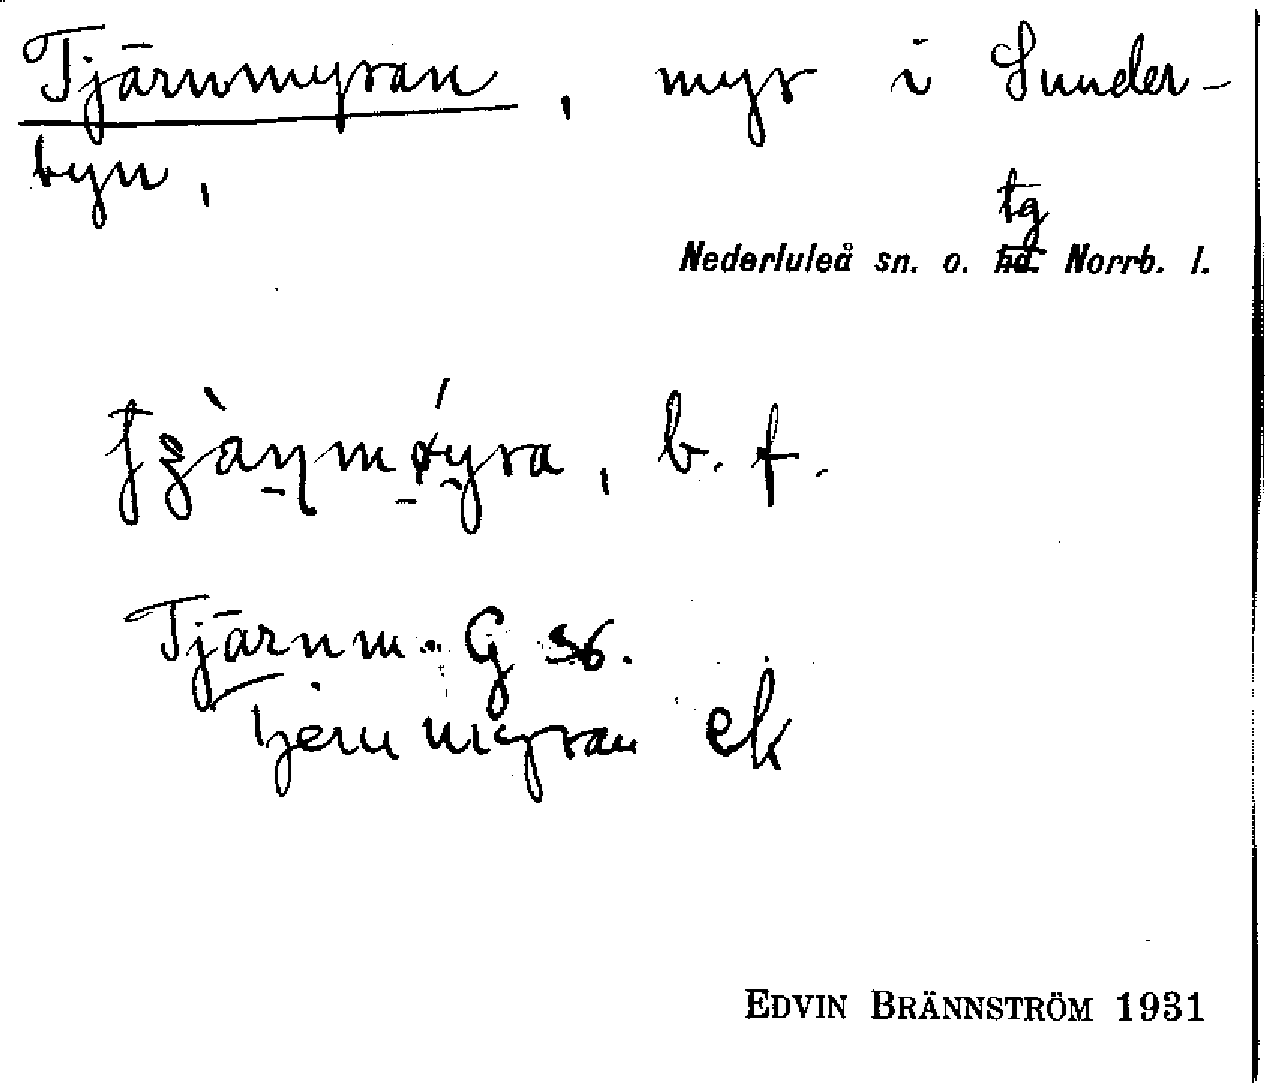 Tjärnmyran, myr i Sunder-
byn,
tg
Nederluleå sn. o. hd. Norrb. l.
b. f.
Tjärnm. G 36.
tjernmyran ek
EDVIN BRÄNNSTRÖM 1931